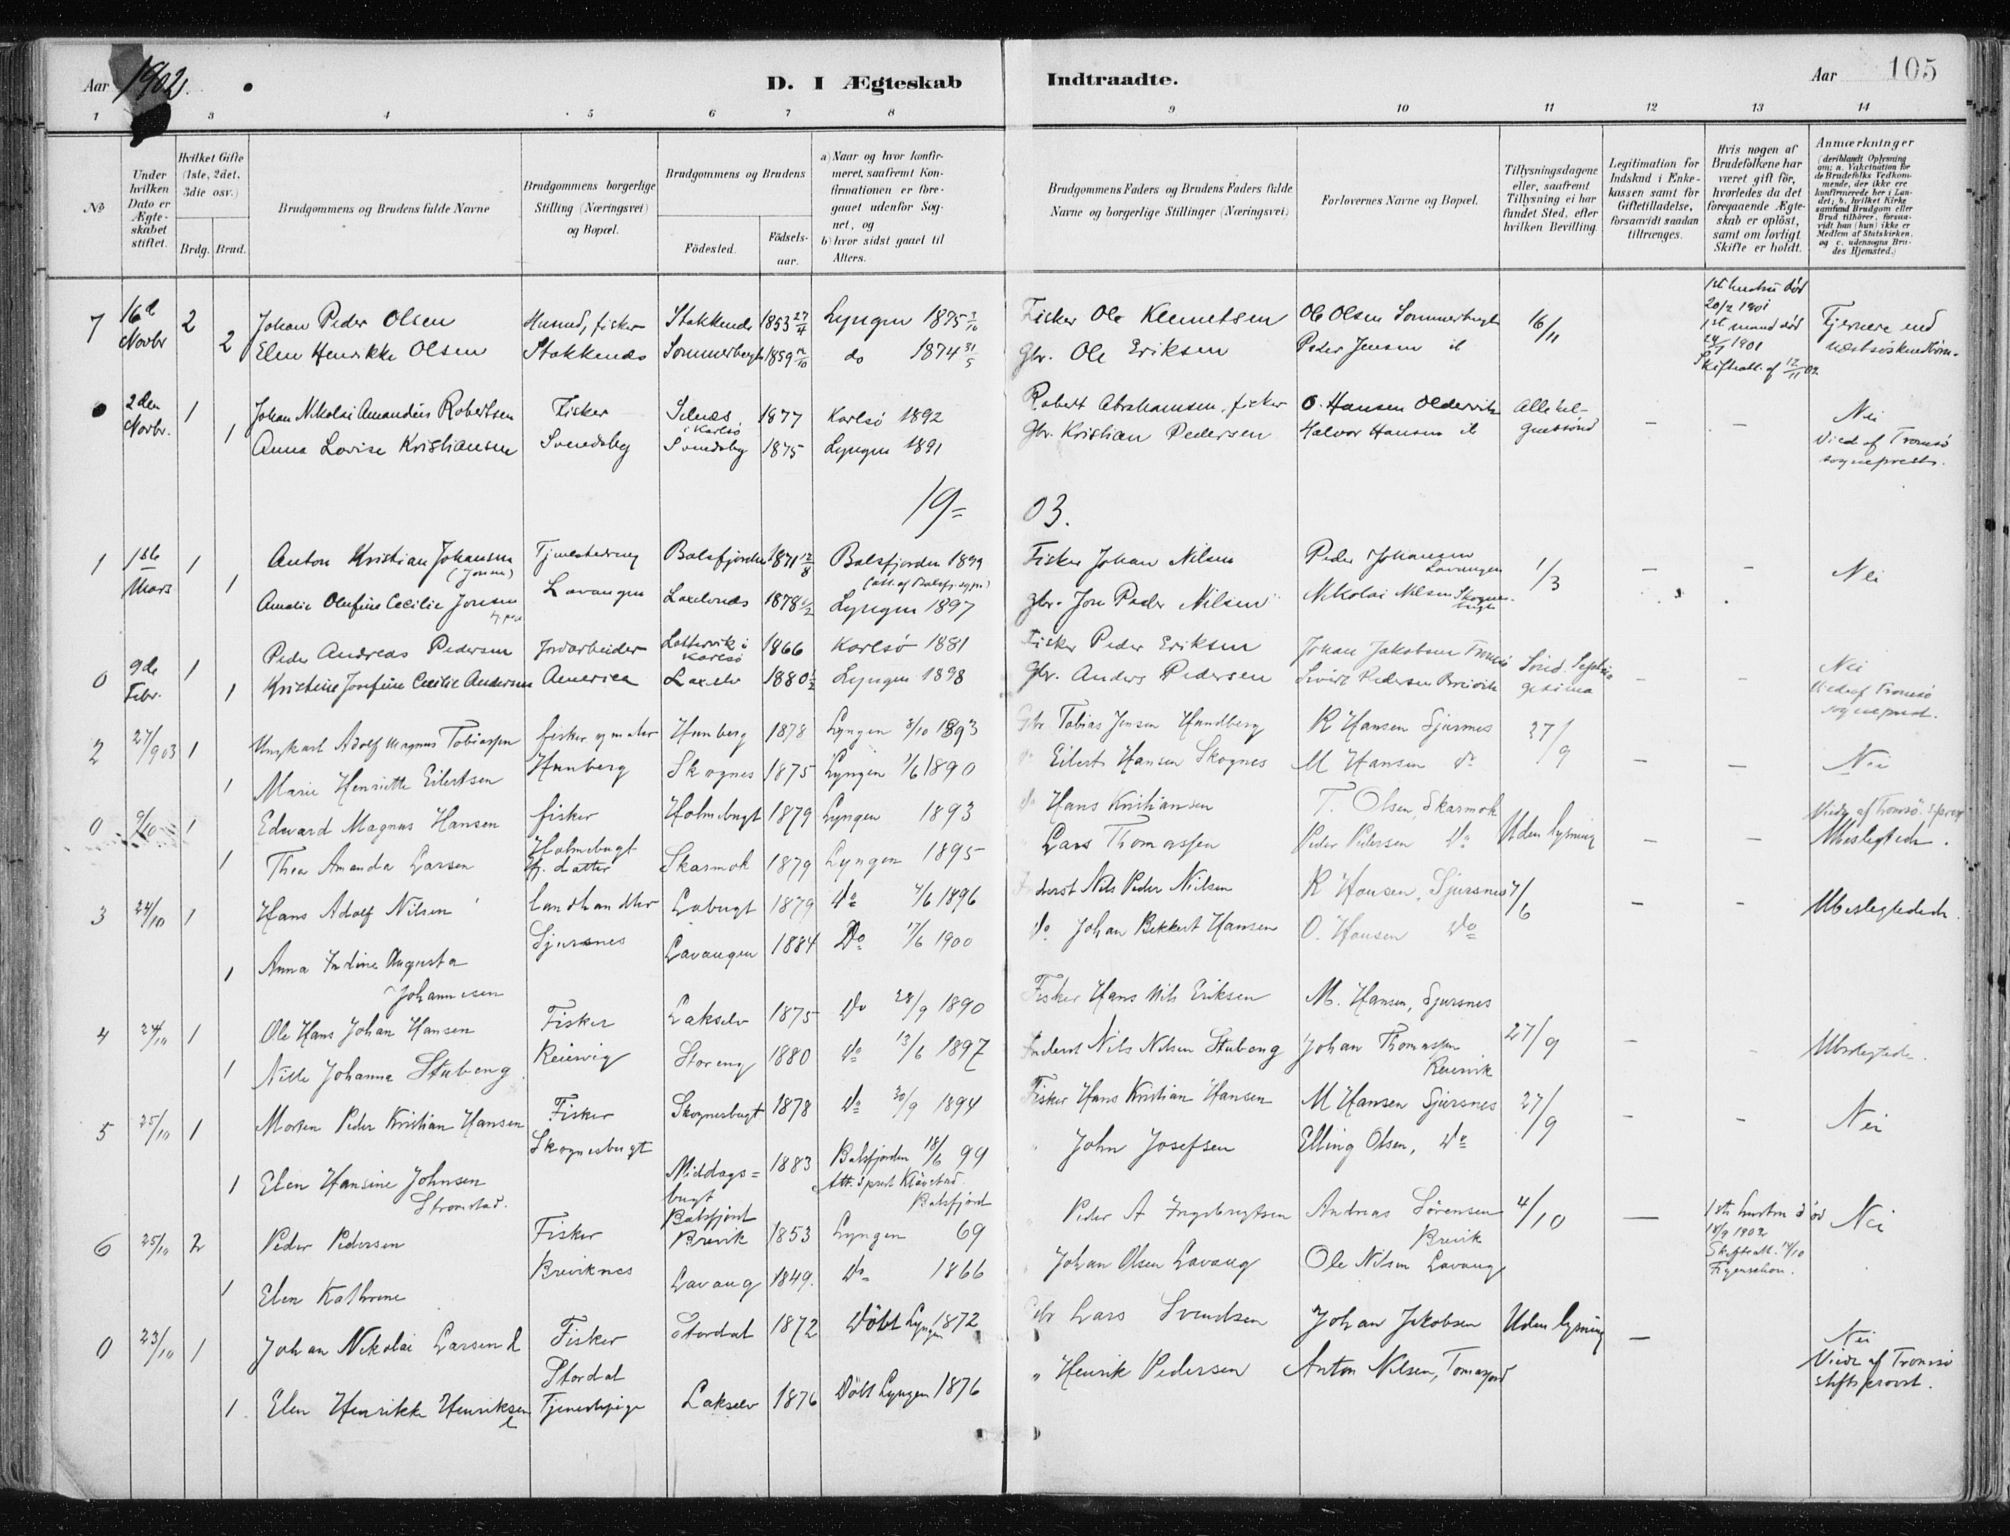 Aar 1902.
D. I Ægteskab Indtraadte.
Aar 105
1 3 4 5 6 7 8 9 10 11 12 13 14
No
Under hvilken Dato er Ægteskabet stiftet.
Hvilket Gifte (1ste, 2det, 3die osv.)
Brdg. Brud.
Brudgommens og Brudens fulde Navne
Brudgommens borgerlige Stilling (Næringsvei) og Bopæl.
Brudgommens og Brudens
Födested.
Födsels-aar.
a) Naar og hvor konfirmeret, saafremt Konfirmationen er foregaaet udenfor Sognet, og
b) hvor sidst gaaet til Alters.
Brudgommens Faders og Brudens Faders fulde Navne og borgerlige Stillinger (Næringsvei)
Forlovernes Navne og Bopæl.
Tillysningsdagene eller, saafremt Tillysning ei har fundet Sted, efter hvilken Bevilling.
Legitimation for Indskud i Enkekassen samt for Giftetilladelse, forsaavidt saadan tiltrænges.
Hvis nogen af Brudefolkene har været gift för, hvorledes da det foregaaende Ægteskab er oplöst, samt om lovligt Skifte er holdt.
Anmærkninger
(deriblandt Oplysning om: a. Vakcination for de Brudefolks Vedkommende, der ikke ere konfirmerede her i Landet; b. hvilket Kirkesamfund Brudgom eller Brud tilhörer, forsaavidt han (hun) ikke er Medlem af Statskirken, og c. udensogns Brudes Hjemsted.)
7 16de Novbr 2 Johan Peder Olsen Husmd, fisker Stokkenes 1853 27/4 Lyngen 1875 3/10 Fisker Ole Klemetsen Ole Olsen Sommerbugt 16/11 1ste hustru död 20/2 1901 Fjernere end
2 Elen Henrikke Olsen Stokkenes Sommerbugt 1859 do 1874 31/5 Gbr. Ole Eriksen Peder Jensen it 1ste mand död 1901 næstsöskendbörn.
Skifteatt. af 12/11 02
2den Novbr. 1 Johan Nikolai Amandus Robertsen Fisker Selnæs i Karlsö 1877 Karlsö 1892 Robert Abrahamsen, fisker O. Hansen Oldervik Allehelgnessönd – – Nei
1 Anna Lovise Kristiansen Svendsby Svendsby 1875 Lyngen 1891 Gbr. Kristian Pedersen Halvor Hansen it Viede af Tromsö sogneprest.
19= 03.
1 1ste Mars 1 Anton Kristian Johansen Tjenestedreng Balsfjorden 1871 12/8 Balsfjorden 1899 Fisker Johan Nilsen Peder Johansen Lavangen 1/3 – – Nei
1 Amalie Olufine Cecilie Jonsen Lavangen Laxelvnes 1878 Lyngen 1897 gbr. Jon Peder Nilsen Nikolai Nilsen Skognesbugt
0 9de Febr. 1 Peder Andreas Pedersen Jordarbeider Karlsö 1866 Karlsö 1881 Fisker Peder Eriksen Johan Jakobsen Tromsö Sönd. Septuagesima – – Nei
1 Kristine Josefine Cecilie Andersen America Laxelv 1880 Lyngen 1898 Gbr. Anders Pedersen Sivert Pedersen Breivik Viede af Tromsö sogneprest.
2 27/9 03 1 Ungkarl Adolf Magnus Tobiassen fisker og maler Hunberg 1878 Lyngen 8/10 1893 Gbr Tobias Jensen Hundberg R Hansen Sjursnes 27/9 – – Nei
1 Marie Henriette Eilertsen Hunberg Skognes 1875 Lyngen 1/6 1890 do Eilert Hansen Skognes M Hansen do
0 9/10 1 Edvard Magnus Hansen fisker Holmebugt 1879 Lyngen 1893 do Hans Kristiansen T. Olsen, Skarmok Uden lysning – – Viede af Tromsö
1 Thea Amanda Larsen Holmebugt datter Skarmok 1879 Lyngen 1895 Lars Thomassen Peder Pedersen do Ubeslegtede.
3 24/10 1 Hans Adolf Nilsen landhandler Labugt 1879 do 4/6 1896 Inderst Nils Peder Nilsen R Hansen, Sjursnes 7/6 – – Ubeslegtede.
1 Anna Indine Augusta Johannesen Sjursnes Lavangen 1884 Do 17/6 1900 do Johan Bekkert Hansen O. Hansen do
4 24/10 1 Ole Hans Johan Hansen Fisker Lakselv 1875 do 28/9 1890 Fisker Hans Nils Eriksen M. Hansen, Sjursnes 27/9 – – Ubeslegtede.
1 Nille Johanna Stubeng Reiervig Storeng 1880 do 13/6 1897 Inderst Nils Nilsen Stubeng Johan Thomassen Reiervik
5 25/10 1 Morten Peder Kristian Hansen Fisker Skognesbugt 1878 do 30/9 1894 Fisker Hans Kristian Hansen M Hansen Sjursnes 27/9 – – Nei
1 Elen Hansine Johnsen Stromstad. Skognesbugt Middagsbugt Balsfjord 1883 Balsfjorden 18/6 99 Balsfjord John Josefsen Elling Olsen, do
6 25/10 2 Peder Pedersen Fisker Brevik 1853 Lyngen 69 Peder A Ingebrigtsen Andreas Sörensen Brevik 4/10 — 1ste hustru död 18/9 1902 Nei
1 Elen Kathrine Breviknes Lavang 1849. do 1866 Johan Olsen Lavang Ole Nilsen Lavang
0 23/10 1 Johan Nikolai Larsen Fisker Stordal 1872 Döbt Lyngen 1872 Gbr Lars Svendsen Johan Jakobsen Uden lysning – Nei
1 Elen Henrikke Henriksen Stordal Tjenestepige Lakselv 1876 Döbt Lyngen 1876 " Henrik Pedersen Anton Nilsen, Viede af Tromsö stiftsprovst.